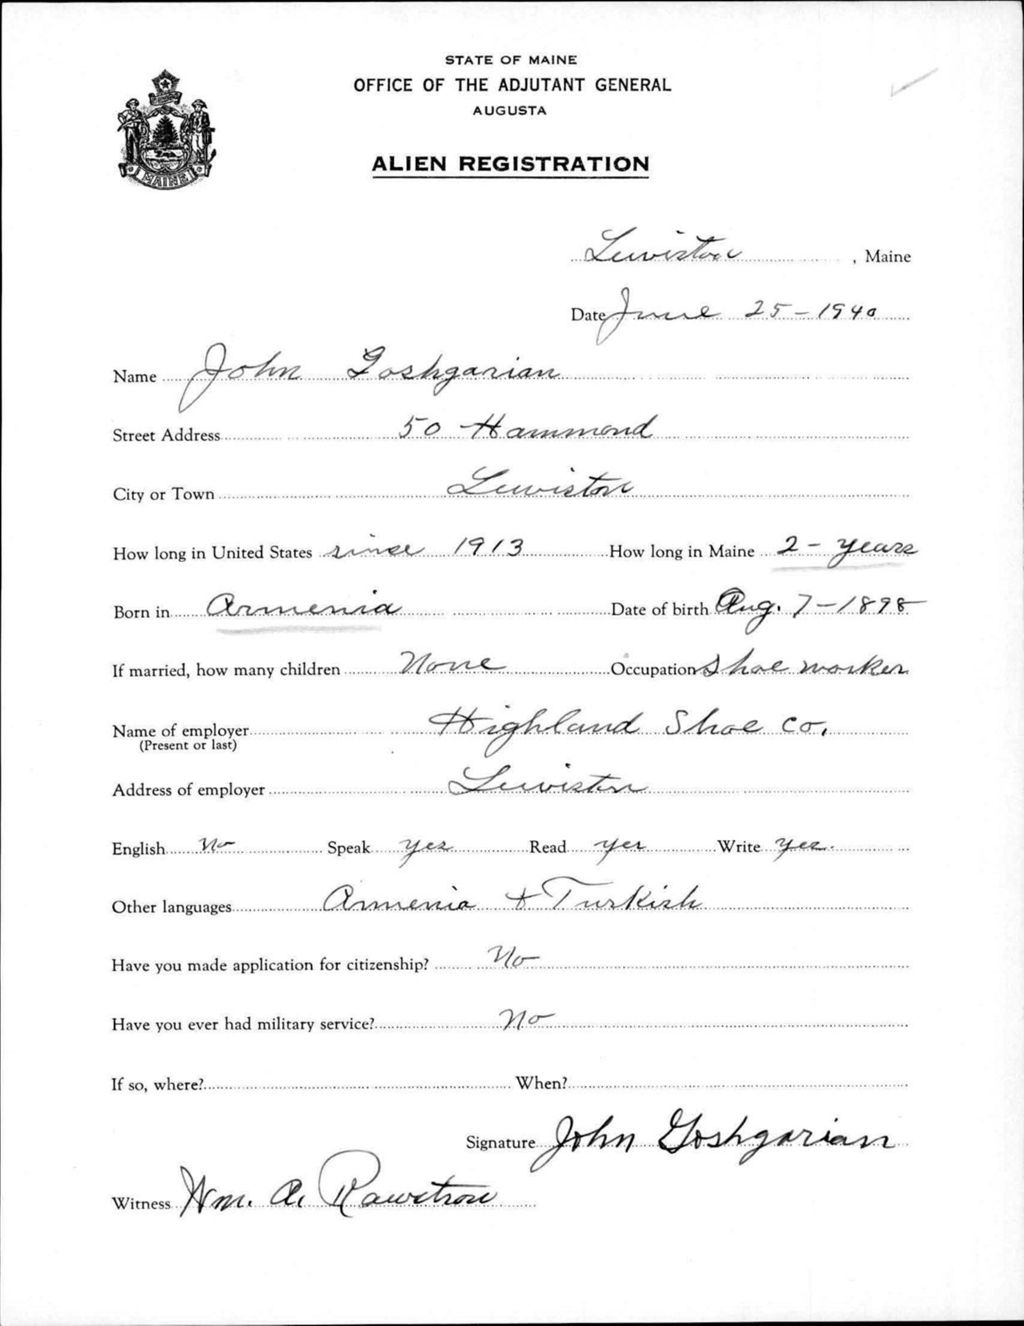 STATE OF MAINE
OFFICE OF THE ADJUTANT GENERAL
AUGUSTA
ALIEN REGISTRATION
MAINE
Lewiston, Maine
Date June 25-1940
Name John Goshgarian
Street Address 50 Hammond
City or Town Lewiston
How long in United States since 1913 How long in Maine 2 - years
Born in Armenia Date of birth Aug. 7-1898
If married, how many children None Occupation Shoe worker
Name of employer Highland Shoe Co.
(Present or last)
Address of employer Lewiston
English No Speak yes Read yes Write yes.
Other languages Armenia + Turkish
Have you made application for citizenship? No
Have you ever had military service? No
If so, where? When?
Signature John Goshgarian
Witness Wm. A. Rawstron